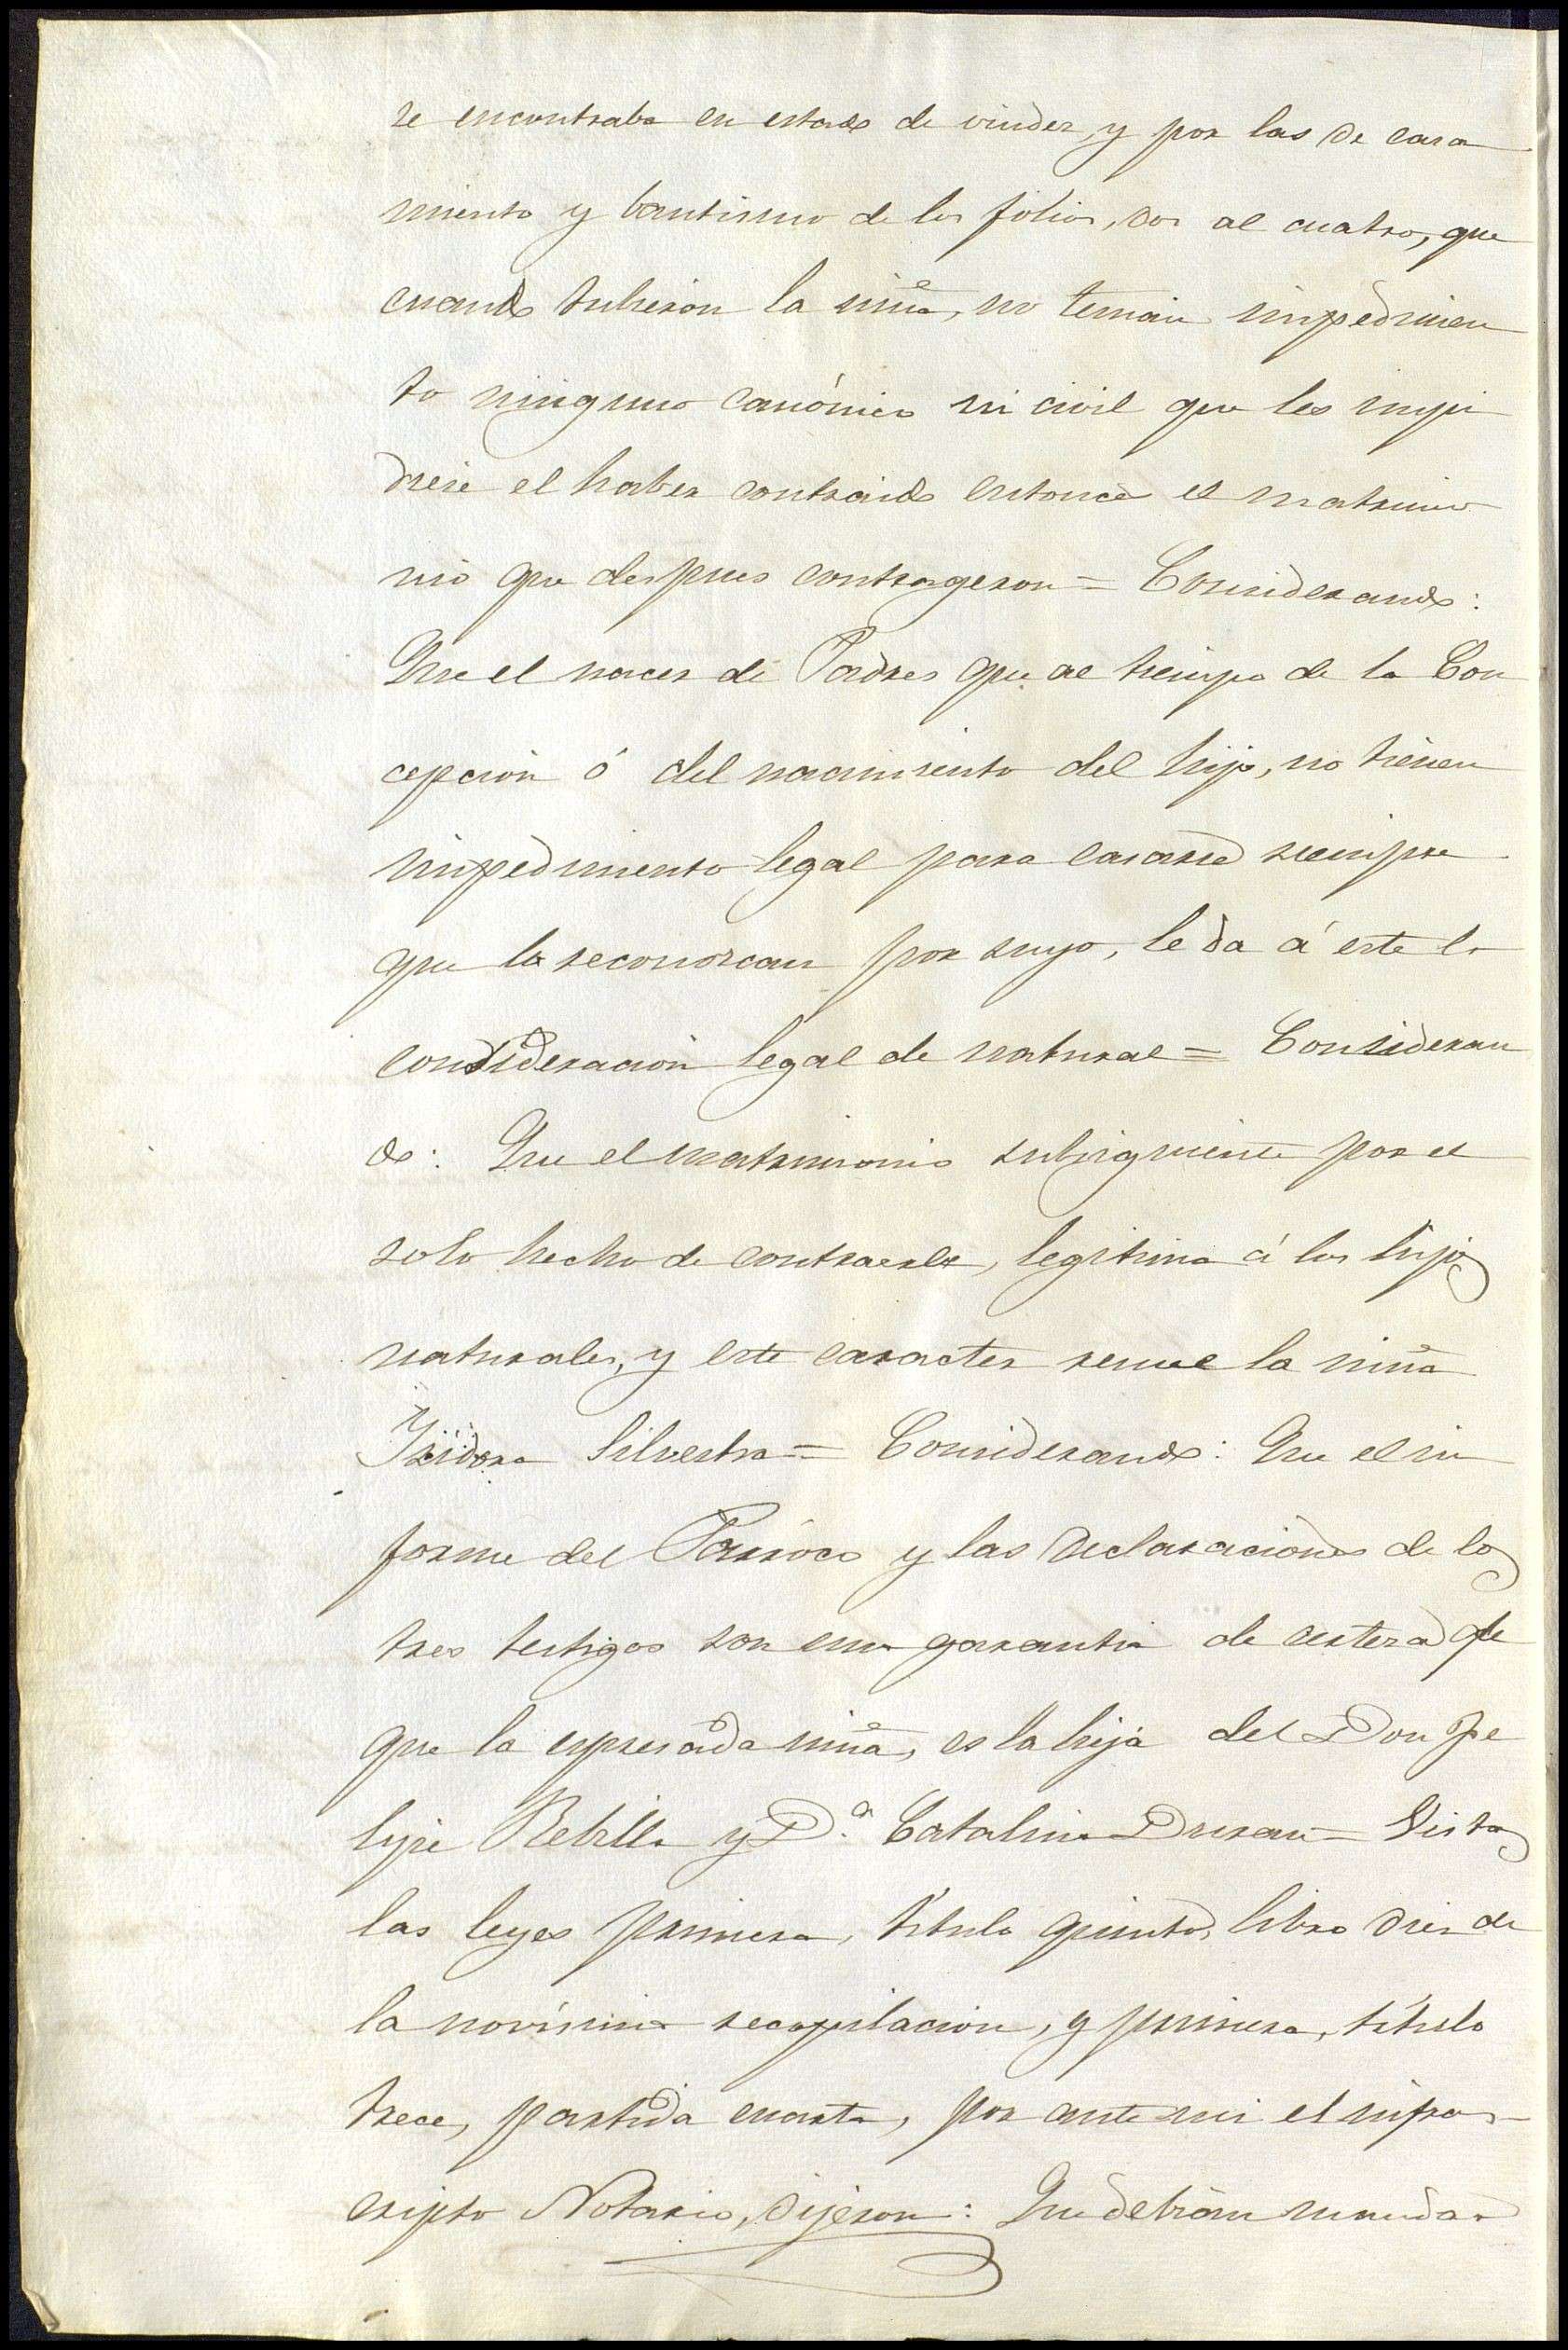 se encontraba en estado de viudez, y por las de casa
miento y bautismo de los folios, dos al cuatro, que
cuando tubieron la niña, no tenian impedimen
to ninguno canónico ni civil que les impi
diese el haber contraido entonces el matrimo
nio que despues contrageron = Considerando:
Que el nacer de Padres que al tiempo de la Con
cepcion ó del nacimiento del hijo, no tienen
impedimento legal para casarse siempre
que lo reconozcan por suyo, le da á este la
consideracion legal de natural = Consideran
do: Que el matrimonio subsiguiente por el
solo hecho de contraerlo, legitima á los hijos
naturales, y este caracter reune la niña
Isidora Silvestra = Considerando: Que el in
forme del Parróco y las declaraciones de los
tres testigos son una garantia de certeza de
que la espresada niña, es la hija del Don Fe
lipe Rebilla y D.ª Catalina Duran = Vistas
las leyes primera, título quinto, libro diez de
la novísima recopilacion, y primera, título
trece, partida cuarta, por ante mi el infras
cripto Notario, dijeron: Que debian mandar